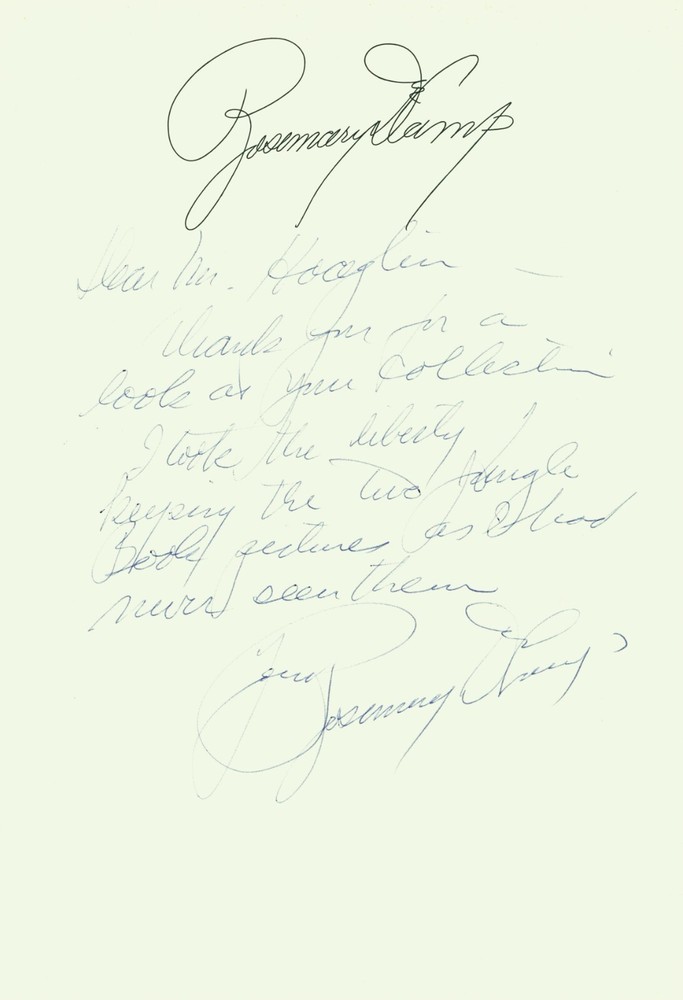 Rosemary DeCamp
Dear Mr. Hoaglin —
Thanks for a
look at your collection
I took the liberty
keeping the two Jungle
Book pictures as I had
never seen them
Rosemary DeCamp